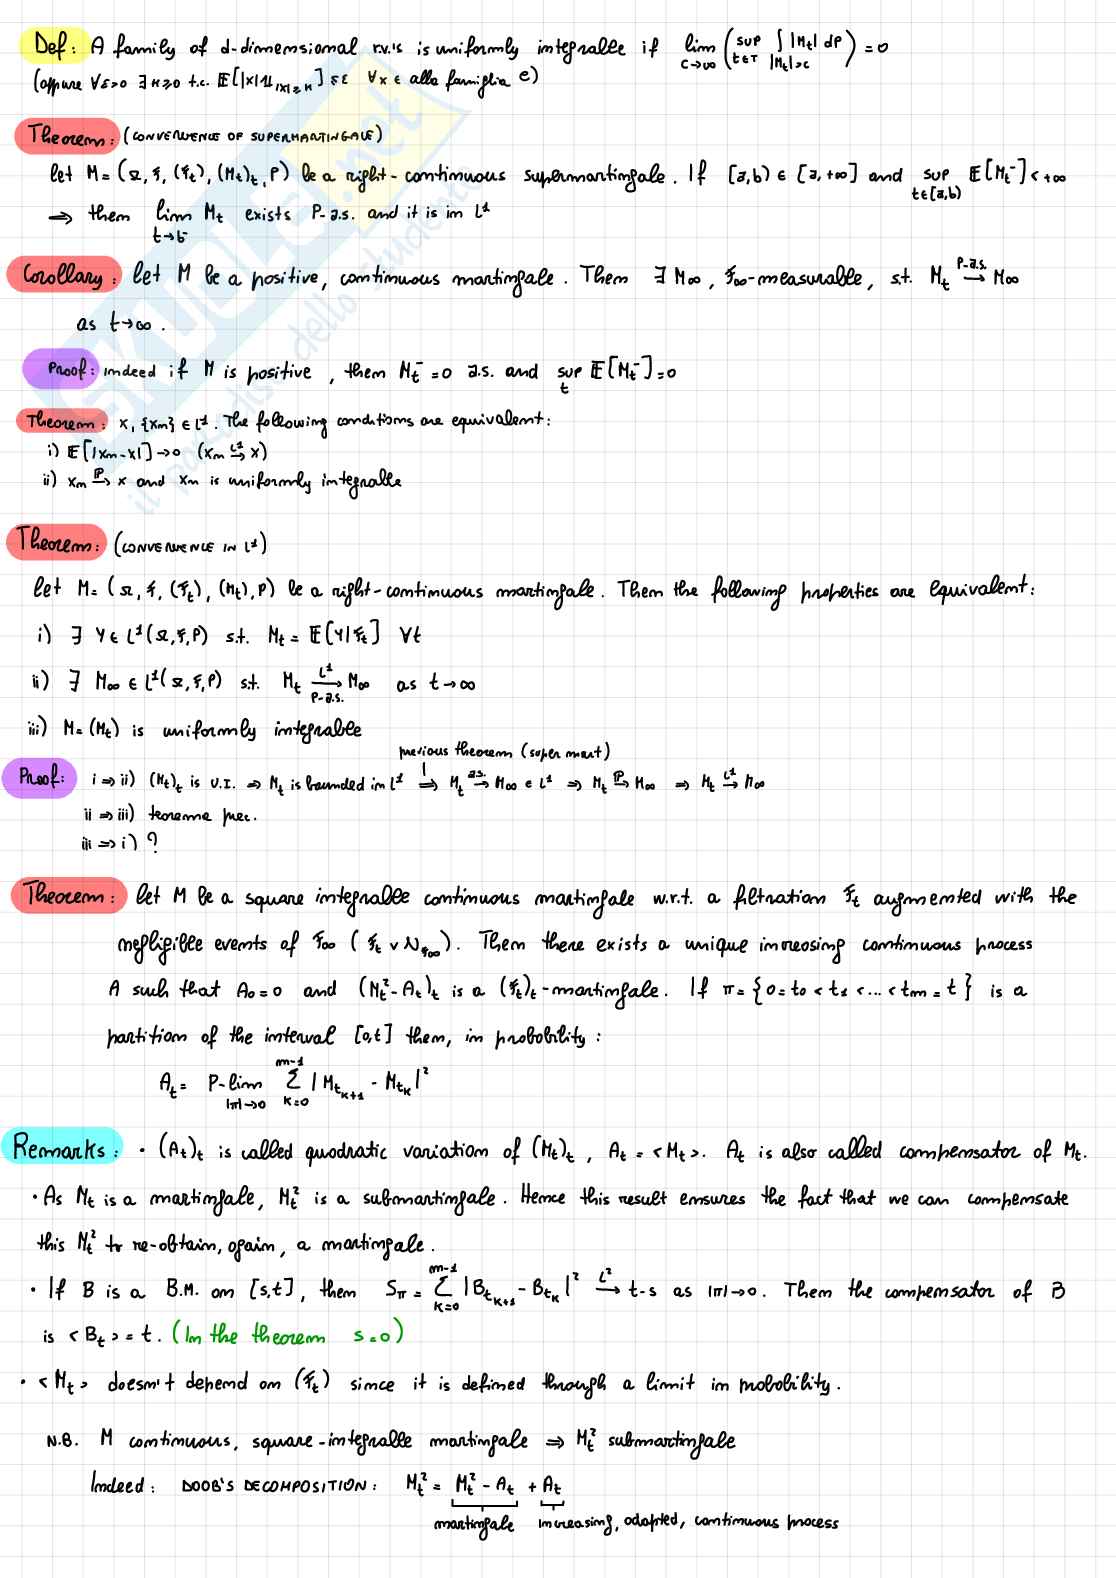 Def: A family of d-dimensional r.v.'s is uniformly integrable if lim_{c→∞} ( sup_{t∈T} ∫_{|M_t|>c} |M_t| dP ) = 0
(oppure ∀ε>0 ∃ K≥0 t.c. 𝔼[|X|𝟙_{|X|≥K}] ≤ ε ∀X ∈ alla famiglia C)
Theorem: (CONVERGENCE OF SUPERMARTINGALE)
let M = (Ω, F, (F_t), (M_t)_t, P) be a right-continuous supermartingale. If [a,b) ∈ [a,+∞] and sup_{t∈[a,b)} 𝔼[M_t^-] < +∞
⇒ then lim_{t→b^-} M_t exists P-a.s. and it is in L¹
Corollary: let M be a positive, continuous martingale. Then ∃ M_∞, F_∞-measurable, s.t. M_t →^{P-a.s.} M_∞
as t→∞.
Proof: indeed if M is positive, then M_t^- = 0 a.s. and sup_t 𝔼[M_t^-] = 0
Theorem: X, {X_n} ∈ L¹. The following conditions are equivalent:
i) 𝔼[|X_n - X|] → 0 (X_n →^{L¹} X)
ii) X_n →^{P} X and X_n is uniformly integrable
Theorem: (CONVERGENCE IN L¹)
let M = (Ω, F, (F_t), (M_t), P) be a right-continuous martingale. Then the following properties are equivalent:
i) ∃ Y ∈ L¹(Ω,F,P) s.t. M_t = 𝔼[Y|F_t] ∀t
ii) ∃ M_∞ ∈ L¹(Ω,F,P) s.t. M_t →^{L¹}_{P-a.s.} M_∞ as t→∞
iii) M = (M_t) is uniformly integrable
previous theorem (supermart)
Proof: i ⇒ ii) (M_t)_t is U.I. ⇒ M_t is bounded in L¹ ⇒ M_t →^{a.s.} M_∞ ∈ L¹ ⇒ M_t →^{P} M_∞ ⇒ M_t →^{L¹} M_∞
ii ⇒ iii) teorema prec.
iii ⇒ i) ?
Theorem: let M be a square integrable continuous martingale w.r.t. a filtration F_t augmented with the
negligible events of F_∞ (F_t ∨ N_{F_∞}). Then there exists a unique increasing continuous process
A such that A_0 = 0 and (M_t² - A_t)_t is a (F_t)_t-martingale. If π = {0 = t_0 < t_1 < ... < t_m = t} is a
partition of the interval [0,t] then, in probability:
A_t = P-lim_{|π|→0} Σ_{k=0}^{m-1} |M_{t_{k+1}} - M_{t_k}|²
Remarks: • (A_t)_t is called quadratic variation of (M_t)_t, A_t = <M_t>. A_t is also called compensator of M_t.
• As M_t is a martingale, M_t² is a submartingale. Hence this result ensures the fact that we can compensate
this M_t² to re-obtain, again, a martingale.
• If B is a B.M. on [s,t], then S_π = Σ_{k=0}^{m-1} |B_{t_{k+1}} - B_{t_k}|² →^{L²} t-s as |π|→0. Then the compensator of B
is <B_t> = t. (In the theorem s=0)
• <M_t> doesn't depend on (F_t) since it is defined through a limit in probability.
N.B. M continuous, square-integrable martingale ⇒ M_t² submartingale
Indeed: DOOB'S DECOMPOSITION: M_t² = M_t² - A_t + A_t
martingale increasing, adapted, continuous process
SKUOLA.net
il paradiso dello studente